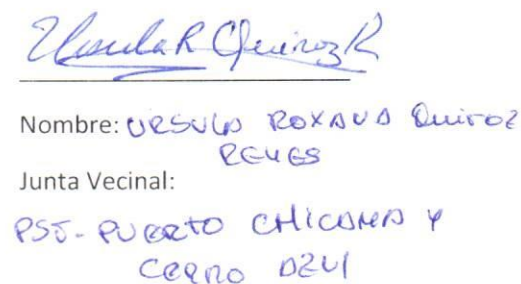 Ursula R Quiroz R
Nombre: URSULA ROXANA Quiroz
REYES
Junta Vecinal:
PSJ- PUERTO CHICAMA Y
CERRO AZUl